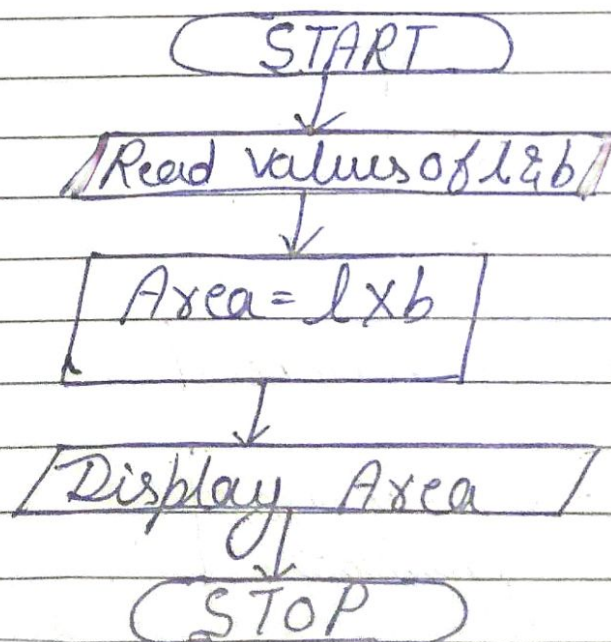 START
Read values of l & b
Area = l x b
Display Area
STOP